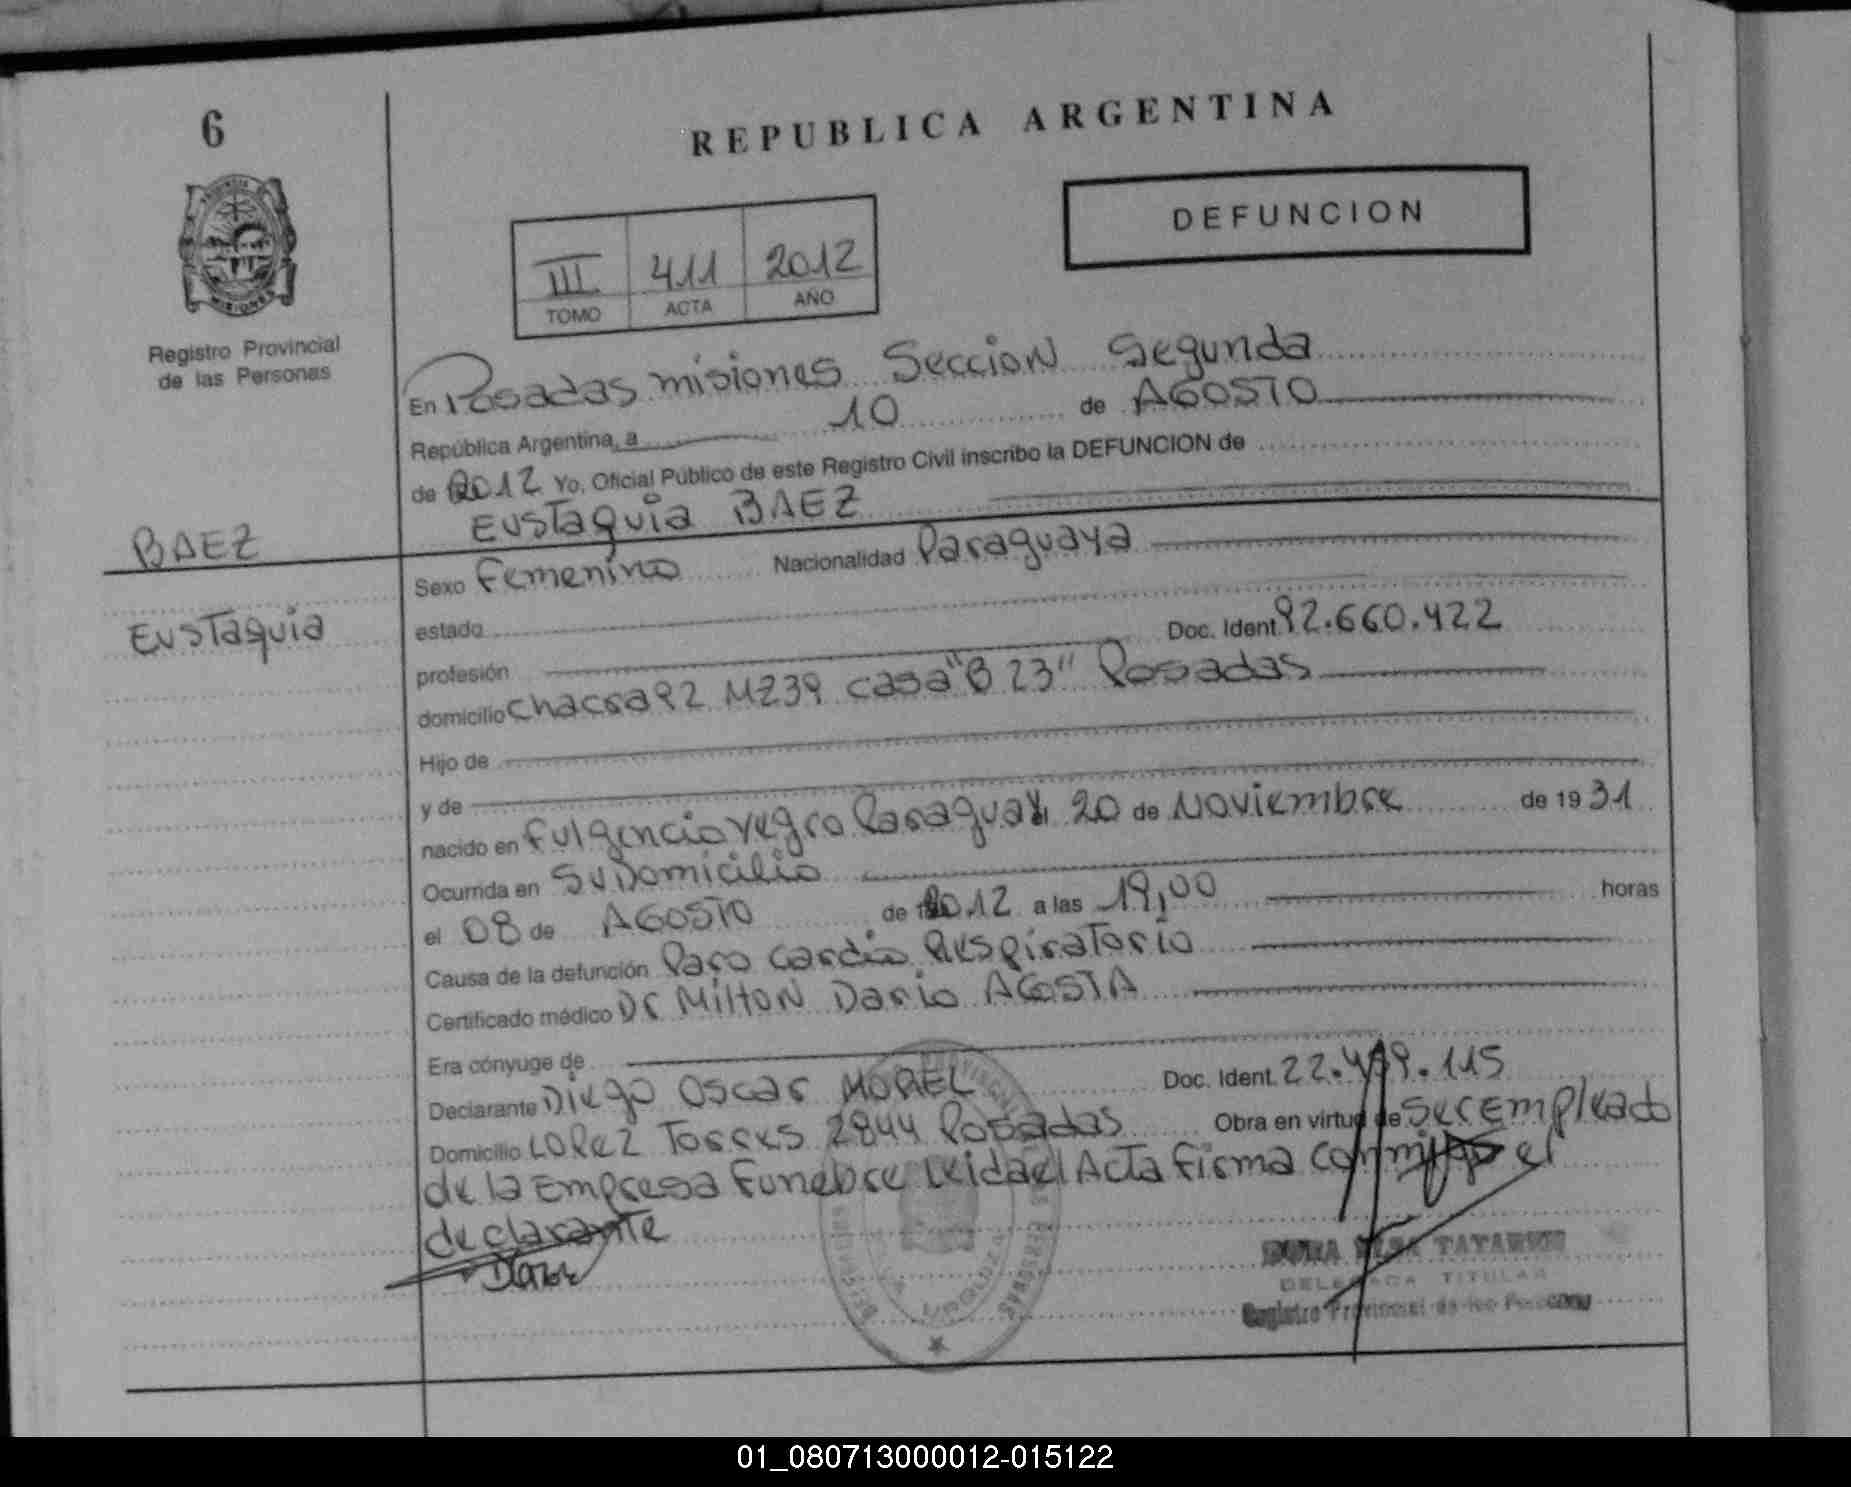 6
REPUBLICA ARGENTINA
MISIONES
Registro Provincial
de las Personas
DEFUNCION
III 411 2012
TOMO ACTA AÑO
En Posadas misiones Seccion Segunda
República Argentina, a 10 de AGOSTO
de 2012 Yo, Oficial Público de este Registro Civil inscribo la DEFUNCION de
EUSTaquia BAEZ
BAEZ
EUSTaquia
Sexo Femenino Nacionalidad Paraguaya
estado
profesión Doc. Ident. 92.660.422
domicilio chacra 92 MZ39 casa "B 23" Posadas
Hijo de
y de
nacido en Fulgencio Yegro Paraguay el 20 de Noviembre de 1931
Ocurrida en Su Domicilio
el 08 de AGOSTO de 2012 a las 19,00 horas
Causa de la defunción Paro Cardio Respiratorio
Certificado médico Dr Milton Dario ACOSTA
Era cónyuge de
Declarante Diego Oscar MOREL Doc. Ident. 22.499.115
Domicilio LOPEZ Torres 2844 Posadas Obra en virtud de Ser Empleado
de la Empresa Funebre leida el Acta firma conmigo el
declarante
DELEGADA TITULAR
Registro Provincial de las Personas
01_080713000012-015122